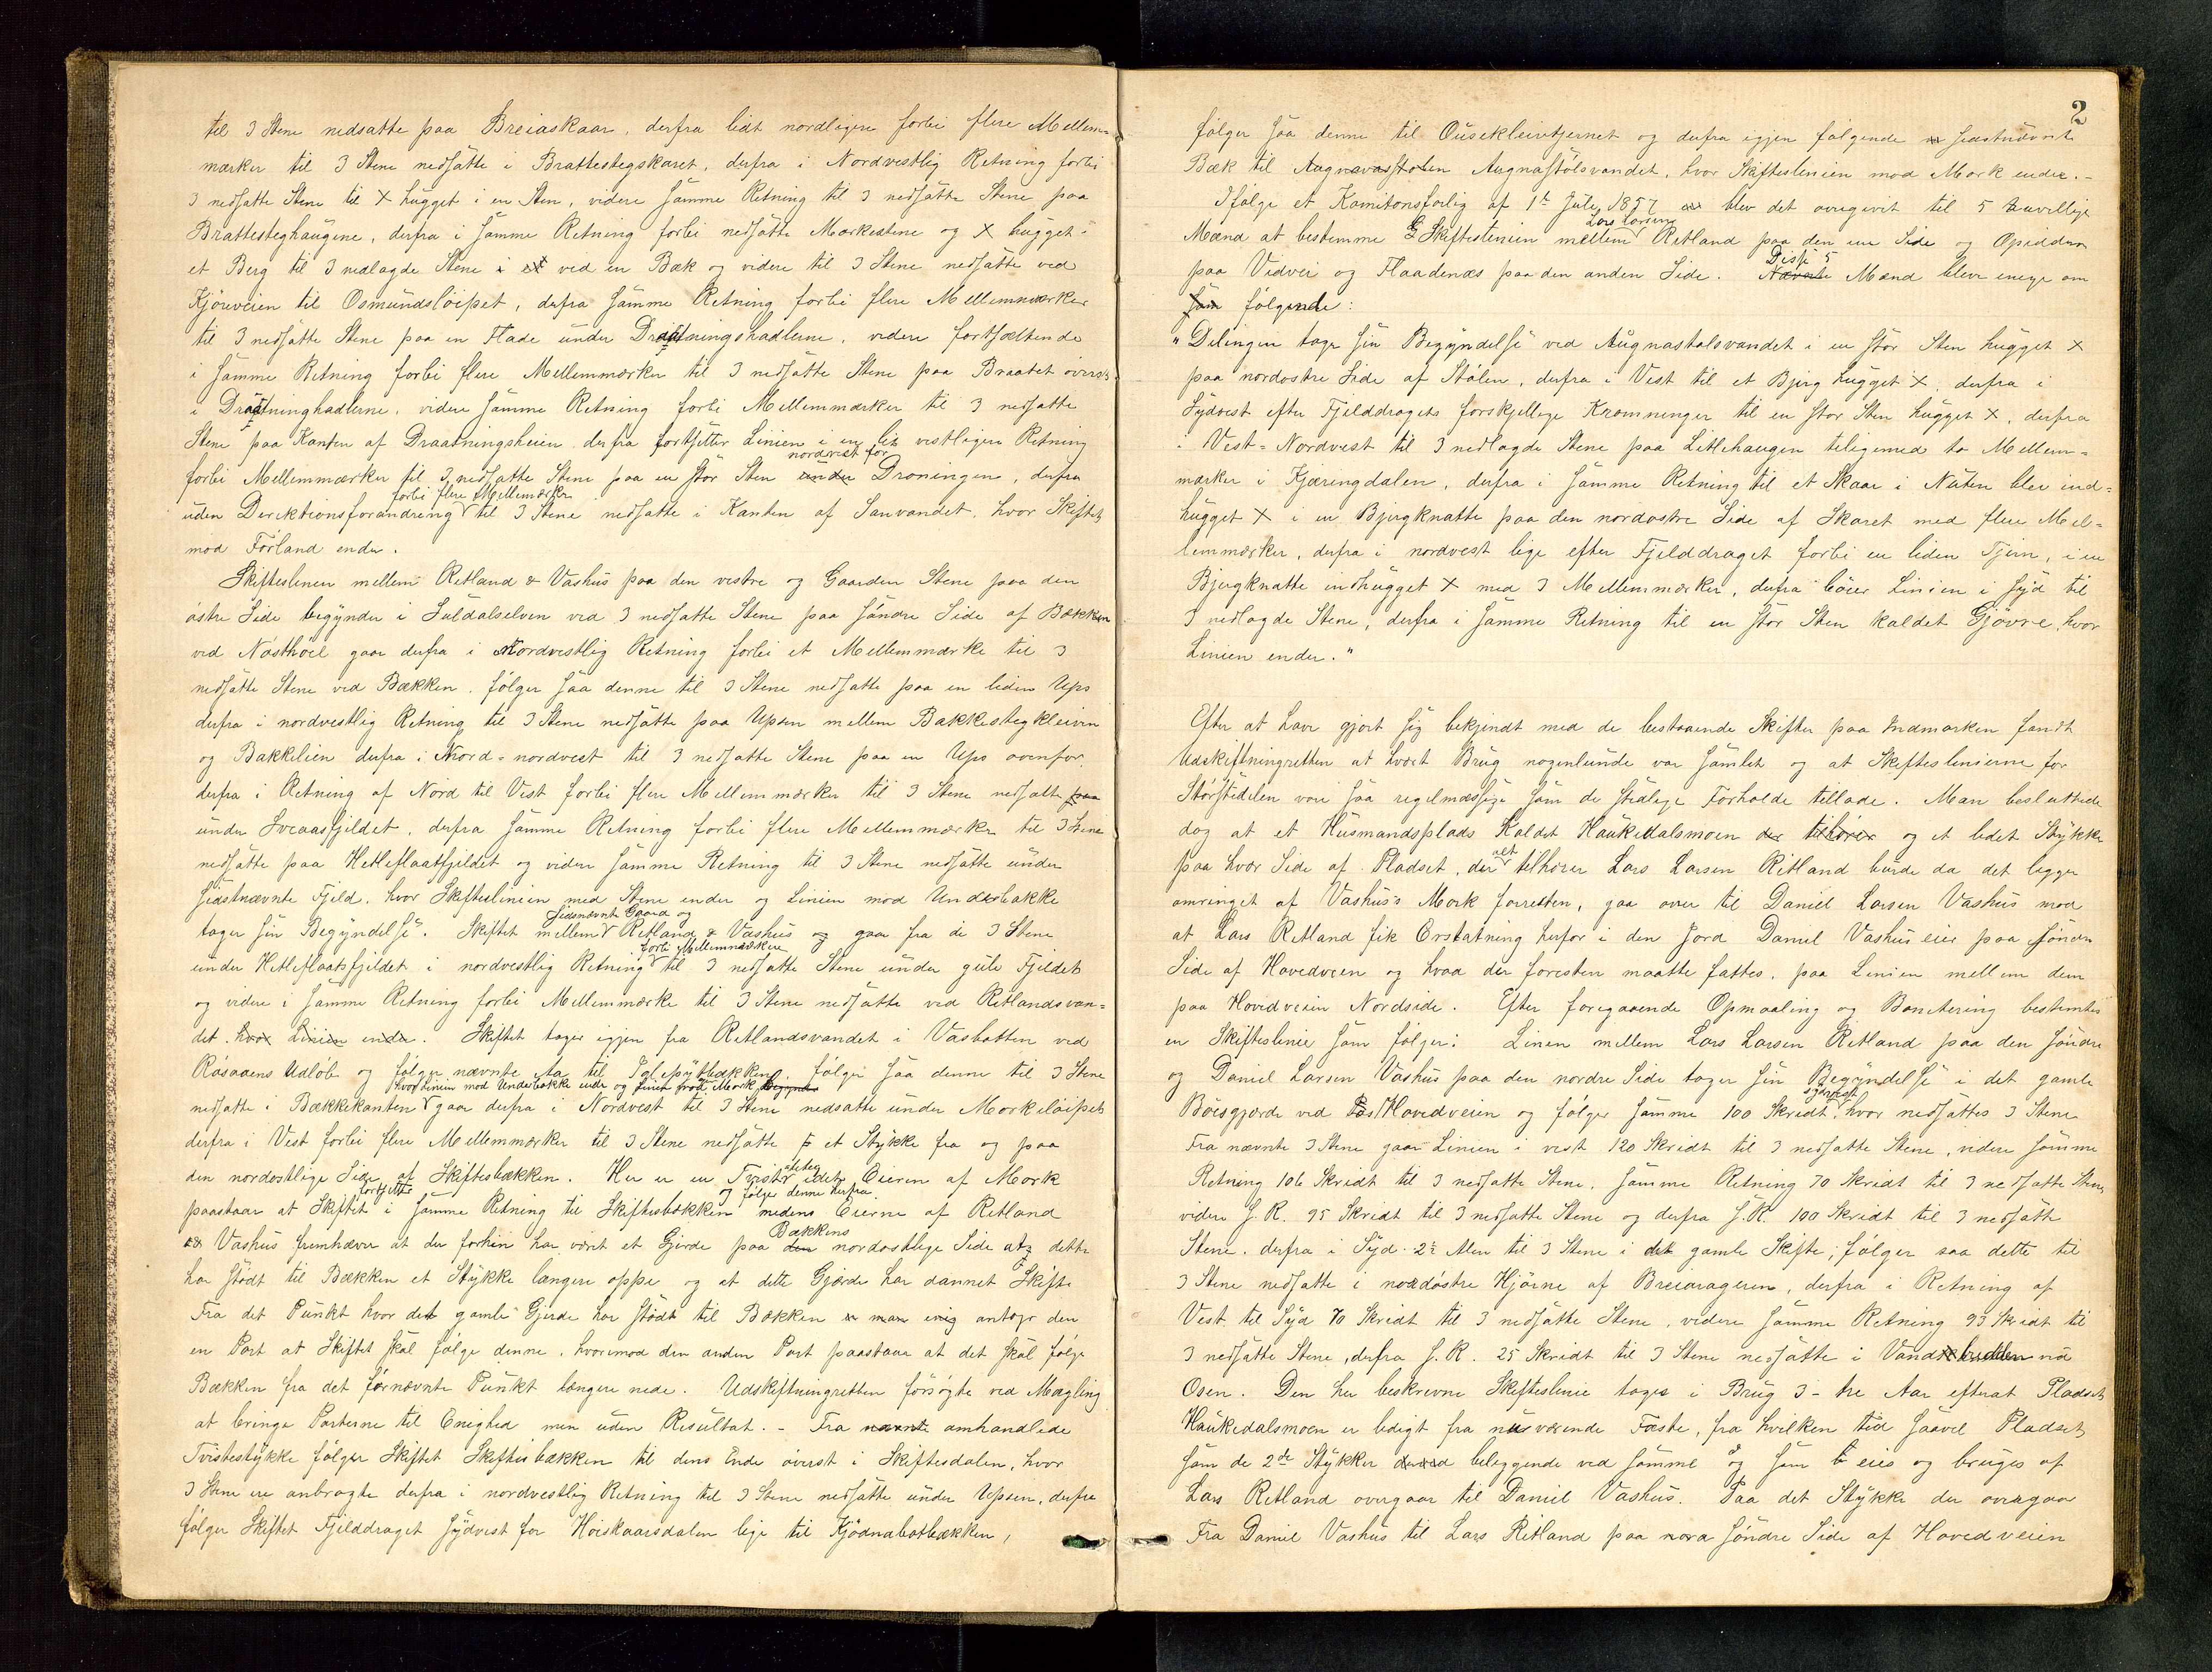 til 3 Stene nedsatte paa Breiaskaar, derfra lidt nordligere forbi flere Mellem-
mærker til 3 Stene nedsatte i Brattestegskaret, derfra i Nordvestlig Retning forbi
3 nedsatte Stene til X hugget i en Sten, videre samme Retning til 3 nedsatte Stene paa
Brattesteghaugene, derfra i samme Retning forbi nedsatte Mærkestene og X hugget i
et Berg til 3 nedlagde Stene i et ved en Bæk og videre til 3 Stene nedsatte ved
Kjöreveien til Osmundslöipet, derfra samme Retning forbi flere Mellemmærker
til 3 nedsatte Stene paa en Flade under Draatningshadlerne, videre fortsættende
i samme Retning forbi flere Mellemmærker til 3 nedsatte Stene paa Braatet överst
i Draatninghadlerne, videre samme Retning forbi Mellemmærker til 3 nedsatte
Stene paa Kanten af Draatningsheien derfra fortsetter Linien i en lit vestligere Retning
nordvest for
forbi Mellemmærker til 3 nedsatte Stene paa en stor Sten under Droningen, derfra
forbi flere Mellemærker
uden Direktionsforandring til 3 Stene nedsatte i Kanten af Sanvandet, hvor Skiftet
mod Förland ender.
Skifteslinien mellem Retland & Vashus paa den vestre og Gaarden Stene paa den
östre Side begynder i Suldalselven ved 3 nedsatte Stene paa söndre Side af Bækken
ved Nösthöil gaar derfra i Nordvestlig Retning forbi et Mellemmærke til 3
nedsatte Stene ved Bækken, fölger saa denne til 3 Stene nedsatte paa en liden Ups
derfra i nordvestlig Retning til 3 Stene nedsatte paa Upsen mellem Bakkestegkleiven
og Bakkelien derfra i Nord-nordvest til 3 nedsatte Stene paa en Ups ovenfor,
derfra i Retning af Nord til Vest forbi flere Mellemmærker til 3 Stene nedsatte paa
under Sveaasfjeldet, derfra samme Retning forbi flere Mellemmærker til 3 Stene
nedsatte paa Hetleflaatfjeldet og videre samme Retning til 3 Stene nedsatte under
sidstnævnte Fjeld, hvor Skifteslinien med Stene ender og Linien mod Underbakke
Sidsnævnte Gaard og
tager sin Begyndelse. Skiftet mellem Retland & Vashus og gaar fra de 3 Stene
forbi Mellemmærkere
under Hetleflaatsfjeldet i nordvestlig Retning til 3 nedsatte Stene under gule Fjeldet
og videre i samme Retning forbi Mellemmærke til 3 Stene nedsatte ved Retlandsvan-
det. hvor Linien ender. Skiftet tager igjen fra Retlandsvandet i Vasbotten ved
Råsaaens Udlöb og fölger nævnte Aa til bækken, fölger saa denne til 3 Stene
hvor Linien mod Underbakke ender og Linien mod Mork begynder
nedsatte i Bækkekanten gaar derfra i Nordvest til 3 Stene nedsatte under Morkelöipet
derfra i Vest forbi flere Mellemmærker til 3 Stene nedsatte p et Stykke fra og paa
den nordostlige Side af Skiftesbækken. Her er en Tvist idet Eieren af Mork
fortsetter og fölger denne derfra
paastaar at Skiftet i samme Retning til Skiftesbækken medens Eierne af Retland
Bækkens
og Vashus fremhæver at der forhen har været et Gjerde paa den nordostlige Side at dette
har stödt til Bækken et Stykke længere oppe og at dette Gjærde har dannet Skifte
Fra det Punkt hvor det gamle Gjerde har stödt til Bækken er man enig antager den
en Part at Skiftet skal fölge denne, hvorimod den anden Part paastaar at det skal fölge
Bækken fra det förnævnte Punkt længere nede. Udskiftningretten forsögte ved Mægling
at bringe Parterne til Enighed men uden Resultat. - Fra nævnte omhandlede
Tvistestykke fölger Skiftet Skiftesbækken til dens Ende överst i Skiftesdalen, hvor
3 Stene ere anbragte derfra i nordvestlig Retning til 3 Stene nedsatte under Upsen, derfra
fölger Skiftet Fjelddraget sydvest for Höiskaarsdalen lige til Kjödnabotbækken,
2
fölger saa denne til Ousekleivtjernet og derfra igjen fölgende sidstnævnte
Bæk til Augnavasstolen Augnastölsvandet, hvor Skifteslinien mod Mork ender. -
Ifölge et Kamitonsforlig af 1te Juli 1857 blev det overgivet til 5 uvillige
Lars Larsen
Mænd at bestemme Skifteslinien mellem Retland paa den ene Side og Opsiddere
Disse 5
paa Vedvei og Flaadenæs paa den anden Side. Nævnte Mænd bleve enige om
som fölgende:
"Delingen tager sin Begyndelse ved Augnastolsvandet i en stor Sten hugget X
paa nordostre Side af Stölen, derfra i Vest til et Bjerg hugget X, derfra i
Sydvest efter Fjelddragets forskjellige Kromninger til en stor Sten hugget X, derfra
i Vest-Nordvest til 3 nedlagde Stene paa Litlehaugen tiligemed to Mellem-
mærker i Kjæringdalen, derfra i samme Retning til et Skaar i Nuten blev ind-
hugget X i en Bjergknatte paa den nordostre Side af Skaret med flere Mel-
lemmærker, derfra i nordvest lige efter Fjelddraget forbi en liden Tjern, i en
Bjergknatte indhugget X med 3 Mellemmærker, derfra böier Linien i Syd til
3 nedlagde Stene, derfra i samme Retning til en stor Sten kaldet Gjövre, hvor
Linien ender."
Efter at have gjort sig bekjendt med de bestaaende Skifter paa Indmarken fandt
Udskiftningretten at hvert Brug nogenlunde var samlet og at Skifteslinierne for
Störstedelen vare saa regelmæssige som de stedlige Forholde tillade. Man besluttede
dog at et Husmandsplads Kaldet Haukedalsmoen der tilhörer og et lidet Stykke
paa hver Side af Pladset, der alt tilhörer Lars Larsen Ritland burde da det ligger
omringet af Vashus's Mark forresten, gaa over til Daniel Larsen Vashus mod
at Lars Retland fik Erstatning herfor i den Jord Daniel Vashus eier paa söndre
Side af Hovedveien og hvad der foresten maatte fattes, paa Linien mellem dem
paa Hovedveien Nordside. Efter foregaaende Opmaaling og Bonitering bestemtes
en Skifteslinie som fölger: Linien mellem Lars Larsen Retland paa den söndre
og Daniel Larsen Vashus paa den nordre Side tager sin Begyndelse i det gamle
sydvest
Böesgjærde ved Hovedveien og fölger samme 100 Skridt hvor nedsattes 3 Stene
Fra nævnte 3 Stene gaar Linien i vest 120 Skridt til 3 nedsatte Stene, videre samme
Retning 106 Skridt til 3 nedsatte Stene, samme Retning 70 Skridt til 3 nedsatte Stene
videre S. R. 95 Skridt til 3 nedsatte Stene og derfra S. R. 100 Skridt til 3 nedsatte
Stene, derfra i Syd 2½ Alen til 3 Stene i det gamle Skifte; fölger saa dette til
3 Stene nedsatte i nordöstre Hjörne af Breiarageren, derfra i Retning af
Vest til Syd 70 Skridt til 3 nedsatte Stene, videre samme Retning 93 Skridt til
3 nedsatte Stene, derfra S. R. 25 Skridt til 3 Stene nedsatte i Vandk
Osen. Den her beskrevne Skifteslinie tages i Brug 3 - tre Aar efterat Pladset
Haukedalsmoen er ledigt fra nuværende Fæste, fra hvilken tid saavel Pladset
som de 2de Stykker beliggende ved samme og som eies og bruges af
Lars Retland overgaar til Daniel Vashus. Paa det Stykke der overgaar
Fra Daniel Vashus til Lars Ritland paa söndre Side af Hovedveien